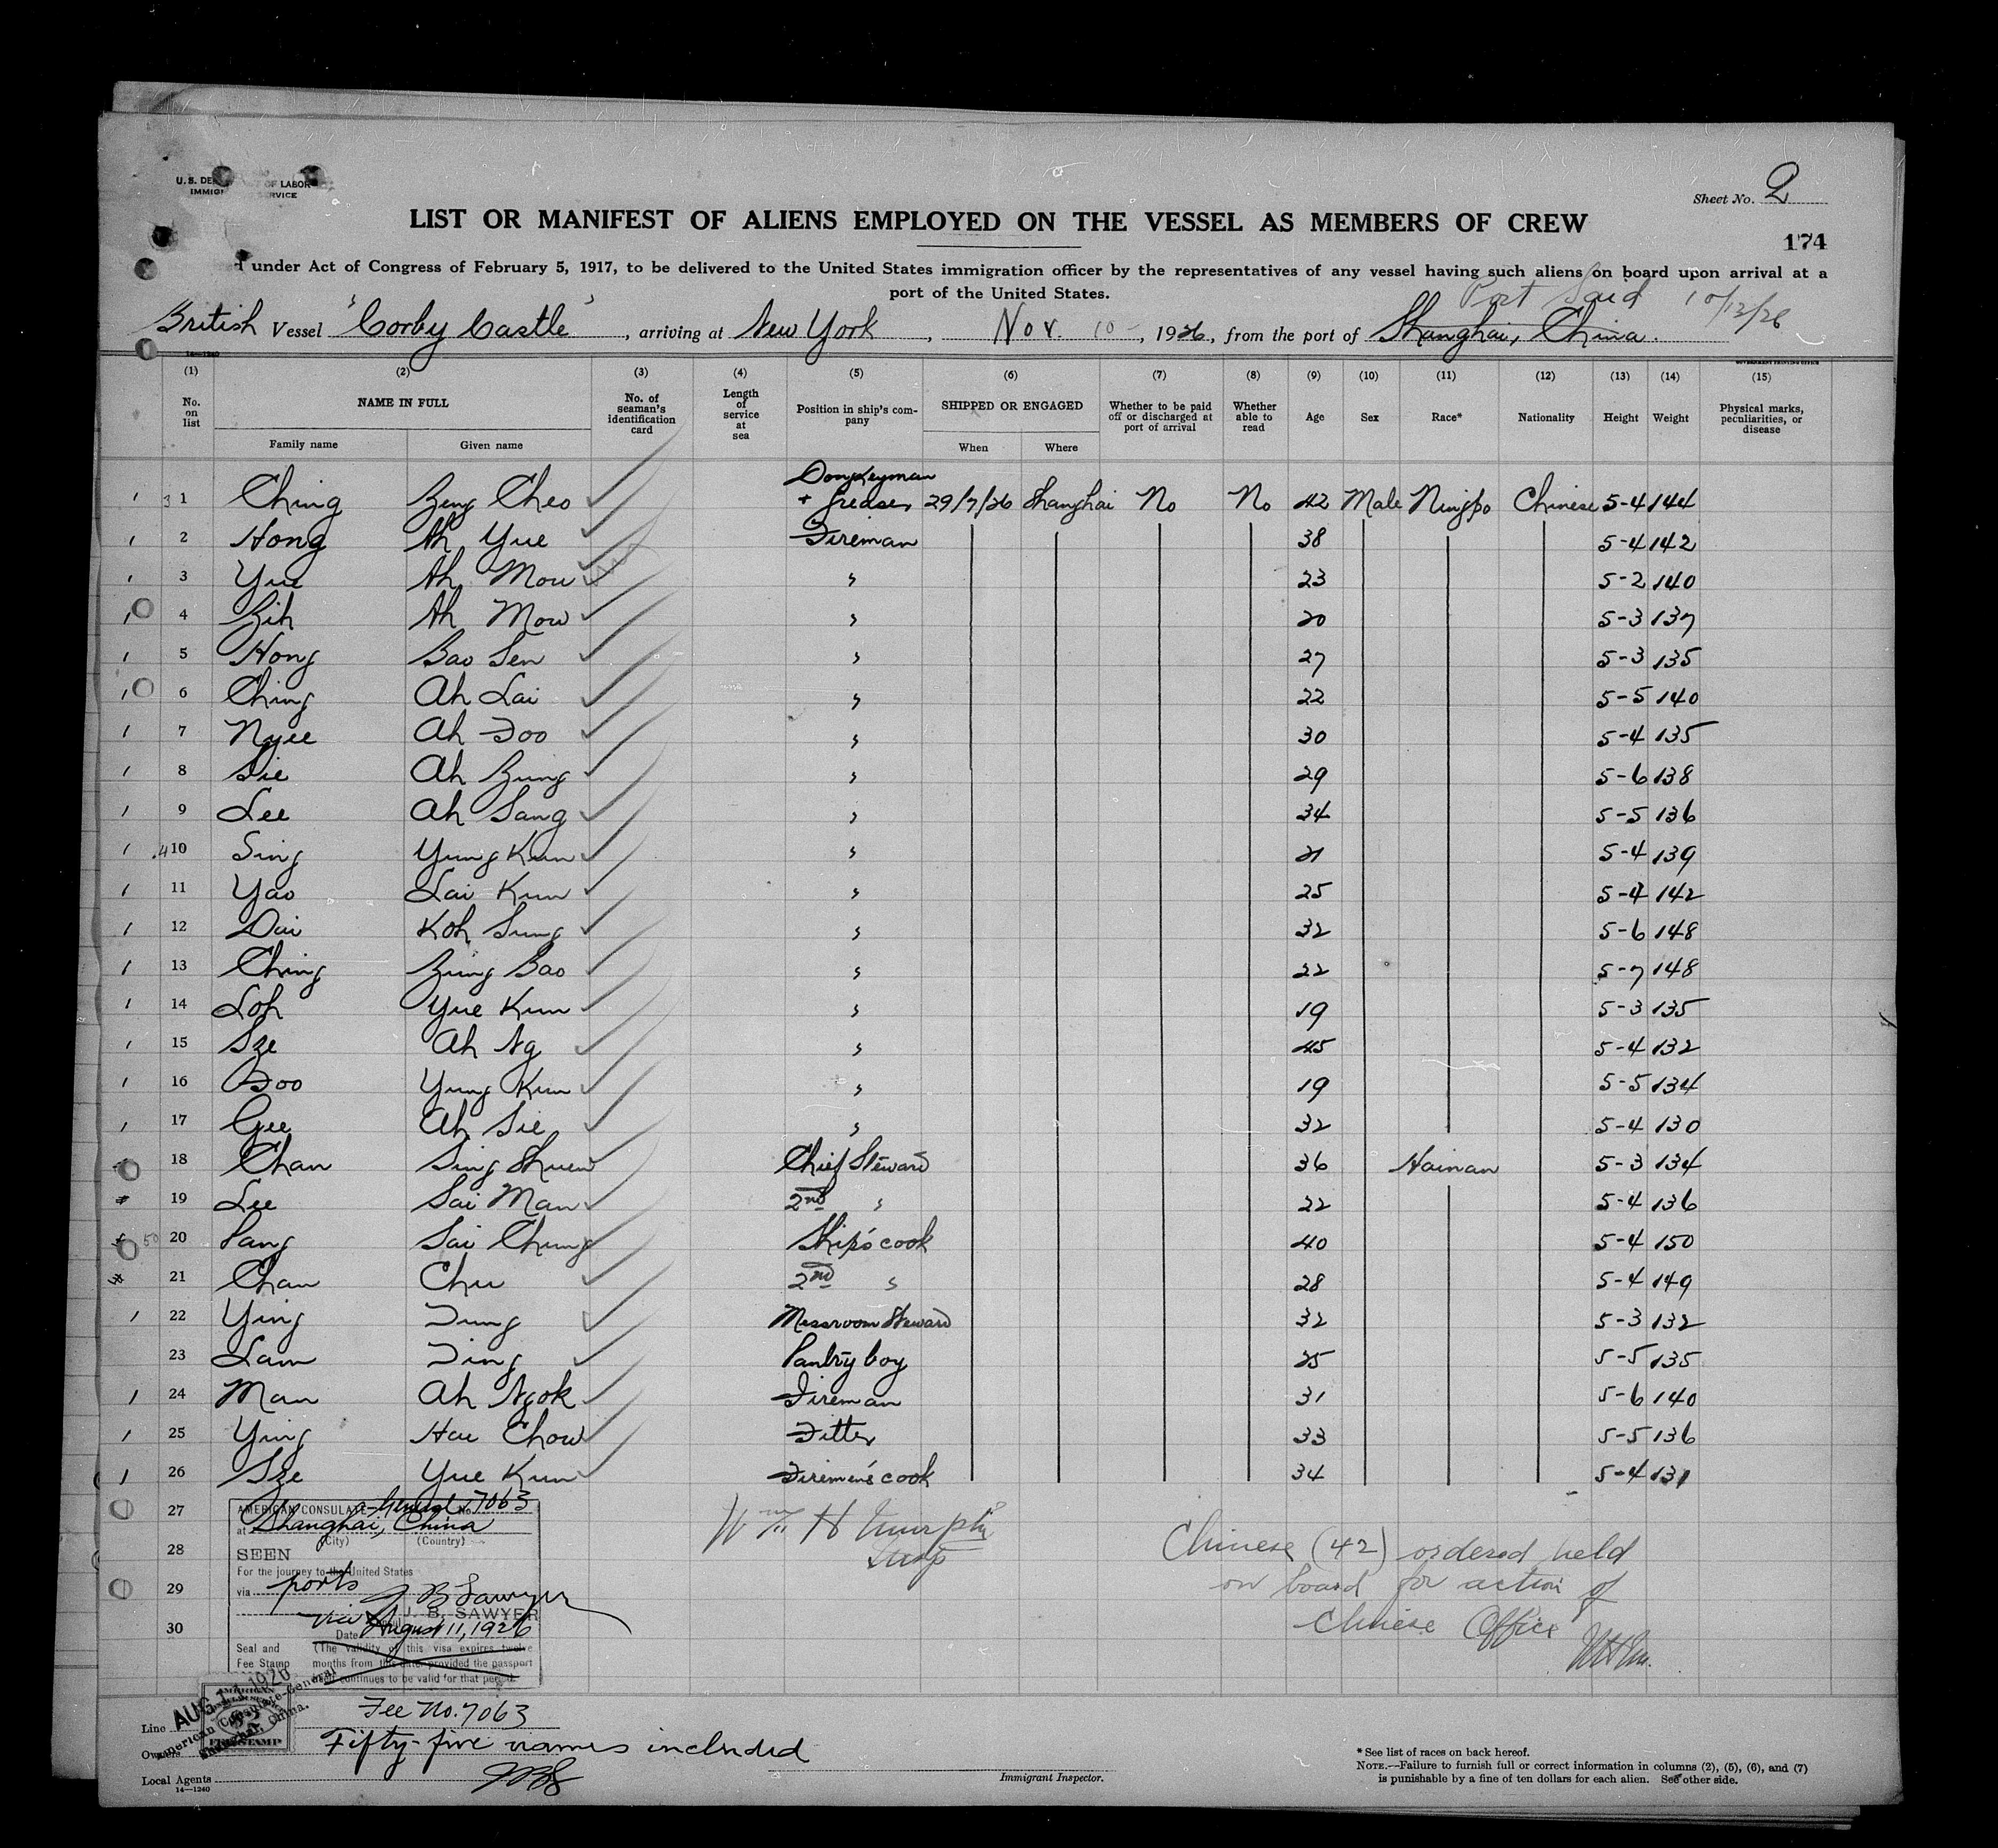 U. S. DE OF LABOR
IMMIG RVICE
Sheet No. 2
LIST OR MANIFEST OF ALIENS EMPLOYED ON THE VESSEL AS MEMBERS OF CREW
174
under Act of Congress of February 5, 1917, to be delivered to the United States immigration officer by the representatives of any vessel having such aliens on board upon arrival at a
port of the United States.
Port Said 10/12/26
British Vessel "Corby Castle", arriving at New York, Nov. 10-, 1926, from the port of Shanghai, China.
14-1240
GOVERNMENT PRINTING OFFICE
(1) (2) (3) (4) (5) (6) (7) (8) (9) (10) (11) (12) (13) (14) (15)
No. on list NAME IN FULL No. of seaman's identification card Length of service at sea Position in ship's company SHIPPED OR ENGAGED Whether to be paid off or discharged at port of arrival Whether able to read Age Sex Race* Nationality Height Weight Physical marks, peculiarities, or disease
Family name Given name When Where
1 3 1 Ching Zeng Cheo Donkeyman + Greaser 29/7/26 Shanghai No No 42 Male Ningpo Chinese 5-4 144
1 2 Hong Ah Yue Fireman 38 5-4 142
1 3 Yue Ah Mow " 23 5-2 140
1 4 Zih Ah Mow " 20 5-3 137
1 5 Hong Bao Sen " 27 5-3 135
1 6 Ching Ah Lai " 22 5-5 140
1 7 Nyee Ah Foo " 30 5-4 135
1 8 Sie Ah Zung " 29 5-6 138
1 9 Lee Ah Sang " 34 5-5 136
1 4 10 Sing Yung Kun " 21 5-4 139
1 11 Yao Lai Kun " 25 5-4 142
1 12 Dai Koh Sung " 32 5-6 148
1 13 Ching Zung Bao " 22 5-7 148
1 14 Loh Yue Kun " 19 5-3 135
1 15 Sze Ah Ng " 45 5-4 132
1 16 Foo Yung Kun " 19 5-5 134
1 17 Gee Ah Sie " 32 5-4 130
18 Chan Sing Shuen Chief Steward 36 Hainan 5-3 134
19 Lee Sai Man 2nd " 22 5-4 136
50 20 Pang Sai Chung Ship's cook 40 5-4 150
21 Chan Chu 2nd " 28 5-4 149
1 22 Ying Tung Messroom Steward 32 5-3 132
23 Lam Ting Pantry boy 25 5-5 135
1 24 Man Ah Ngok Fireman 31 5-6 140
1 25 Ying Hau Chow Fitter 33 5-5 136
1 26 Sze Yue Kun Firemen's cook 34 5-4 131
27
28
29
30
AMERICAN CONSULATE-General No. 7063
at Shanghai, China
(City) (Country)
SEEN
For the journey to the United States
via ports
J B Sawyer
J. B. SAWYER
Date August 11, 1926
Seal and Fee Stamp
(The validity of this visa expires twelve
months from this date provided the passport
continues to be valid for that period
Wm H Murphy
Insp
Chinese (42) ordered held
on board for action of
Chinese Office
WHM.
AUG 11 1926
American Consulate-General
Shanghai, China.
Fee No. 7063
Fifty-five names included
JBS
Line
Owners
Local Agents
14-1240
Immigrant Inspector.
* See list of races on back hereof.
NOTE.—Failure to furnish full or correct information in columns (2), (5), (6), and (7)
is punishable by a fine of ten dollars for each alien. See other side.